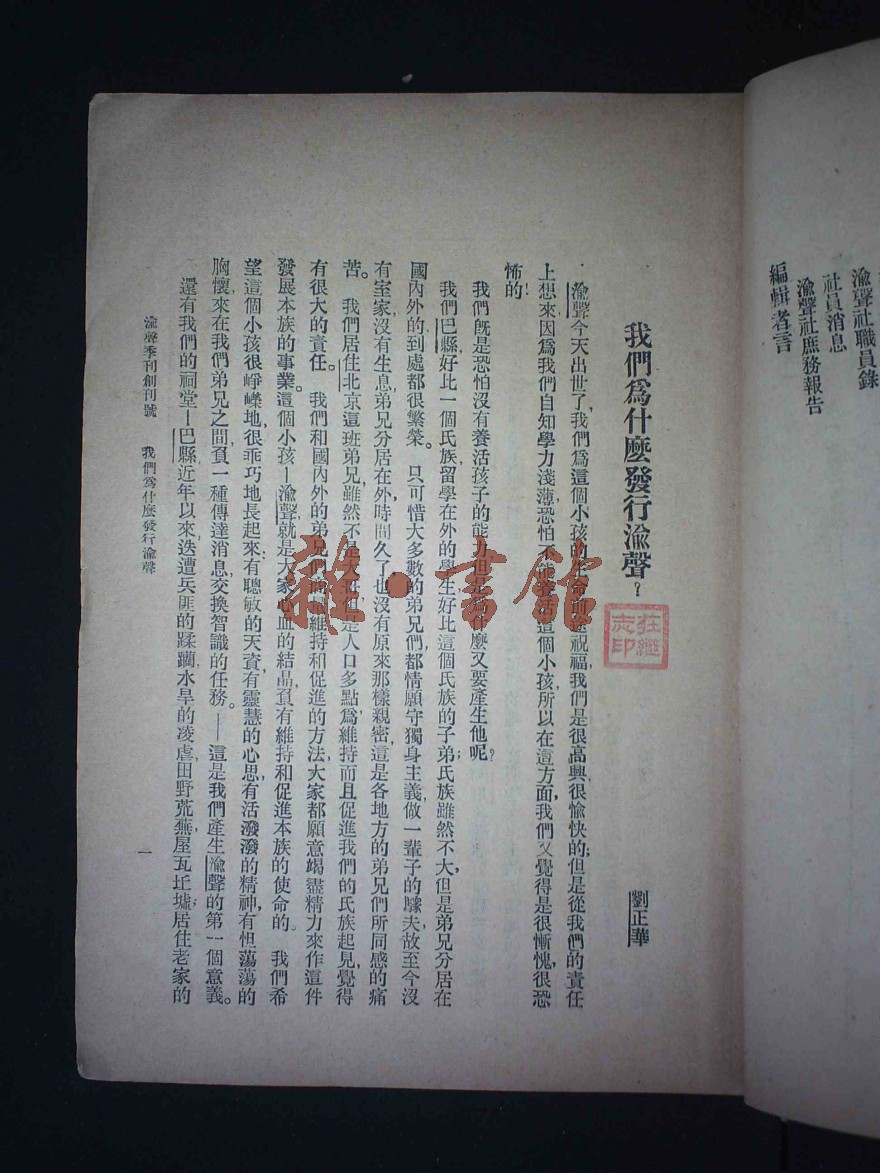 渝聲社職員錄
社員消息
渝聲社庶務報告
編輯者言
我們爲什麽發行渝聲?
劉正華
渝聲今天出世了,我們爲這個小孩的生命前途祝福,我們是很高興很愉快的;但是從我們的責任
上想來,因爲我們自知學力淺薄,恐怕不能養活這個小孩,所以在這方面,我們又覺得是很慚愧很恐
怖的!
我們既是恐怕沒有養活孩子的能力,但是爲什麼又要產生他呢?
我們巴縣,好比一個氏族,留學在外的學生好比這個氏族的子弟;氏族雖然不大,但是弟兄分居在
國內外的,到處都很繁榮。 只可惜大多數的弟兄們,都情願守獨身主義,做一輩子的鰥夫,故至今沒
有室家,沒有生息,弟兄分居在外,時間久了,也沒有原來那樣親密,這是各地方的弟兄們所同感的痛
苦。 我們居住北京這班弟兄,雖然不是大哥,但是人口多點,爲維持而且促進我們的氏族起見,覺得
有很大的責任。 我們和國內外的弟兄們商量維持和促進的方法,大家都願意竭盡精力來作這件
發展本族的事業。這個小孩—渝聲,就是大家心血的結晶,負有維持和促進本族的使命的。 我們希
望這個小孩很崢嶸地,很乖巧地長起來,有聰敏的天資,有靈慧的心思,有活潑潑的精神,有怛蕩蕩的
胸懷,來在我們弟兄之間,負一種傳達消息,交換智識的任務。——這是我們產生渝聲的第一個意義。
還有我們的祠堂—巴縣,近年以來,迭遭兵匪的蹂躪,水旱的凌虐,田野荒蕪,屋瓦坵墟;居住老家的
渝聲季刊創刊號 我們爲什麽發行渝聲
一
雜·書館
莊繼
志印